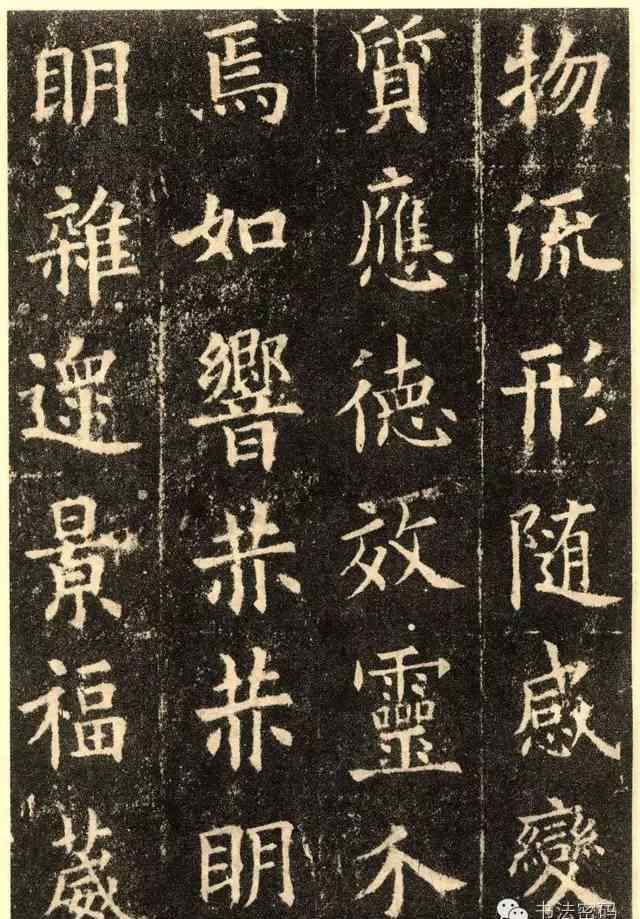 物流形随感變
質應德效靈不
焉如響𠀍𠀍眀
眀雜遝景福葳
书法密码